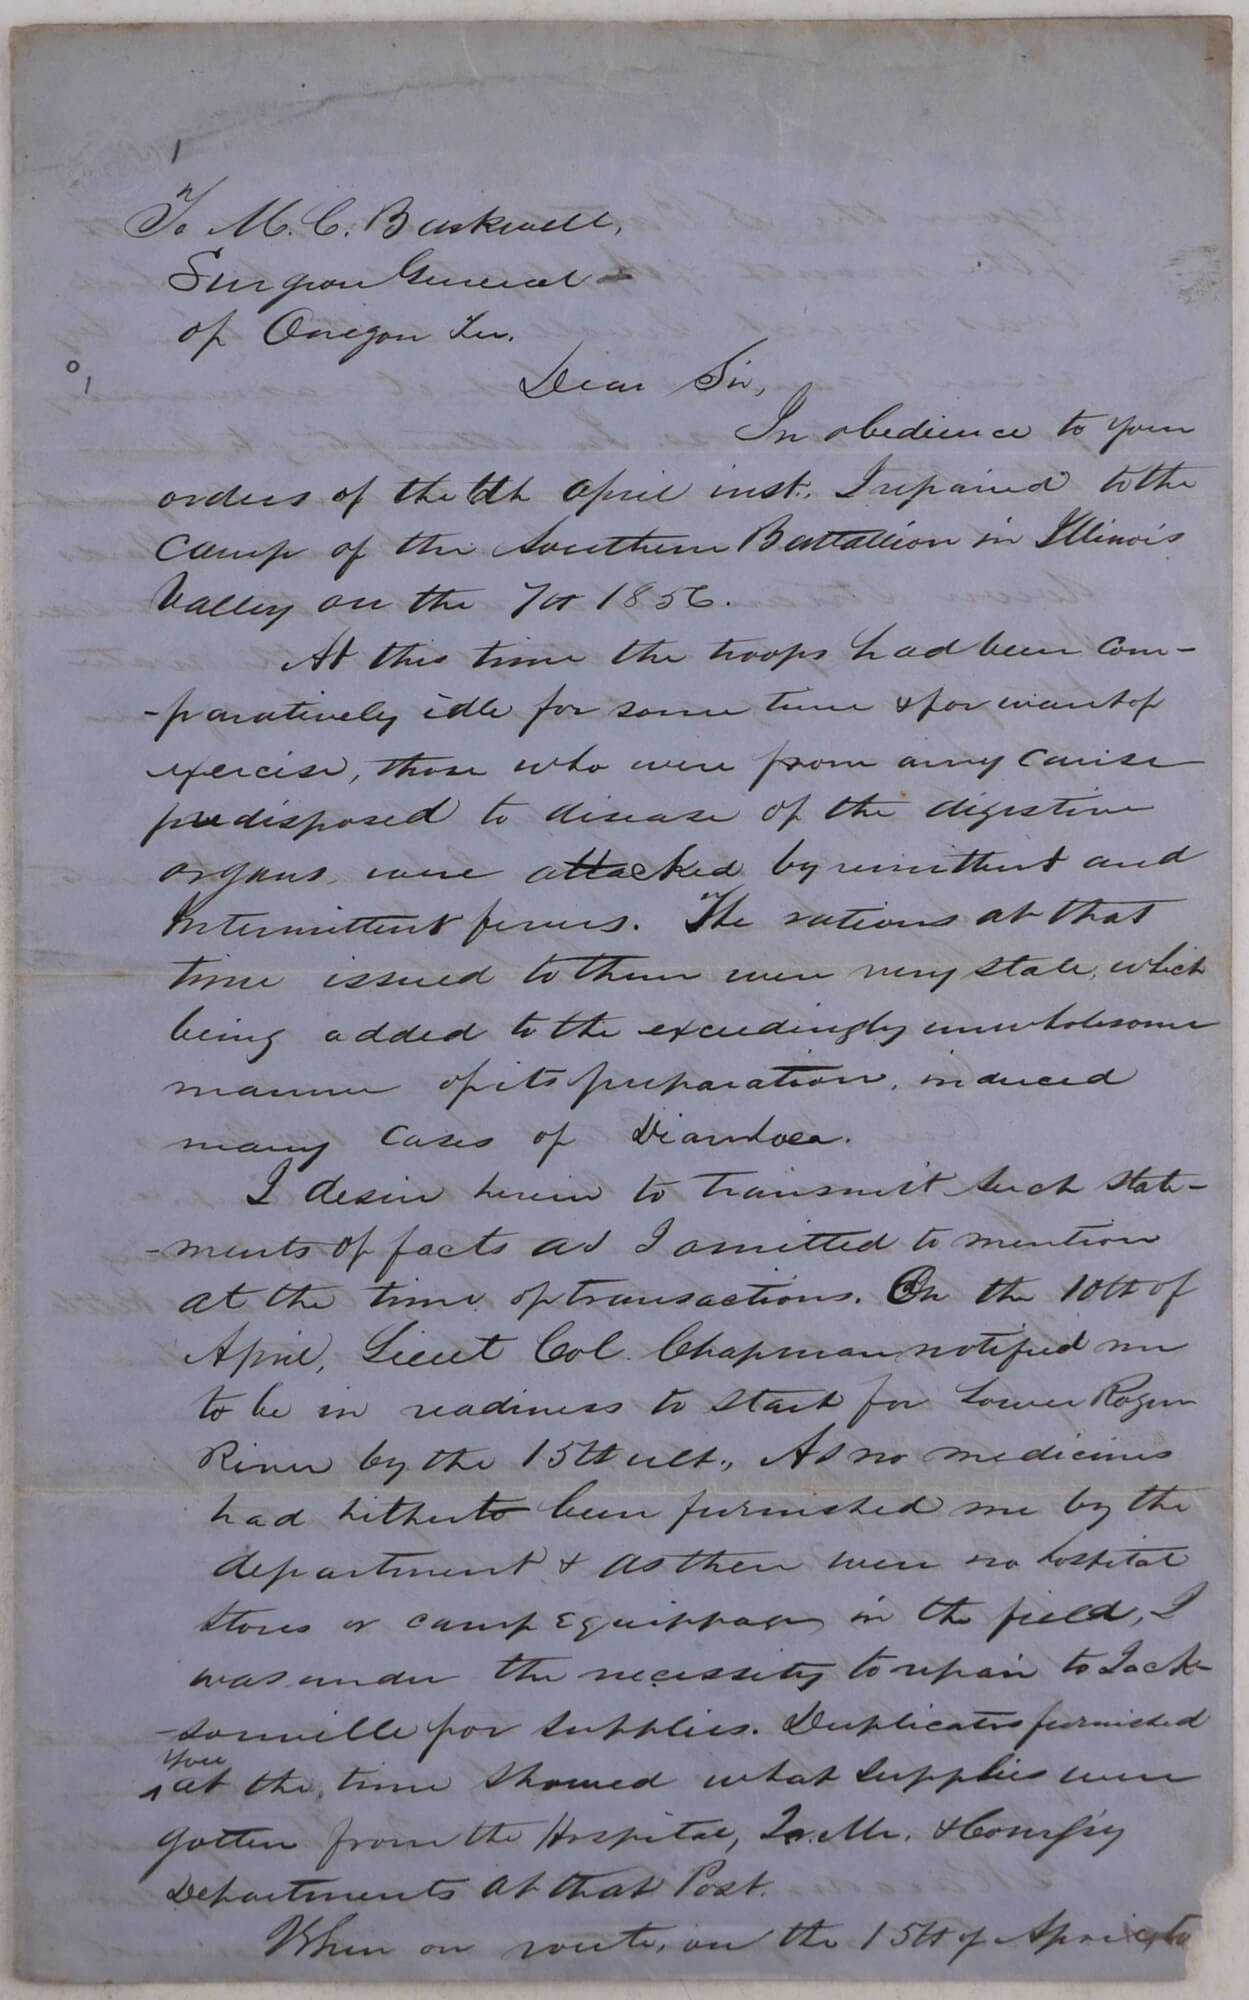 1
To M. C. Barkwell,
Surgeon General
of Oregon Ter.
Dear Sir,
In obedience to your
orders of the April inst., I repaired to the
camp of the Southern Battallion in Illinois
Valley on the 7th 1856.
At this time the troops had been com-
-paratively idle for some time & for want of
exercise, those who were from any cause
predisposed to disease of the digestive
organs, were attacked by remittent and
Intermittent fevers. The rations at that
time issued to them were very stale, which
being added to the exceedingly unwholesome
manner of its preparation, induced
many cases of Diarrhoea.
I desire herein to transmit such state-
-ments of facts as I omitted to mention
at the time of transactions. On the 10th of
April, Lieut Col. Chapman notified me
to be in readiness to start for Lower Rogue
River by the 15th ult., As no medicines
had hitherto been furnished me by the
department & as there were no hospital
stores or camp Equippage in the field, I
was under the necessity to repair to Jack-
-sonville for supplies. Duplicates furnished
you
at the time showed what supplies were
gotten from the Hospital, Qr. Mr. & Com'sy
Departments at that Post.
When on route, on the 15th of April, to